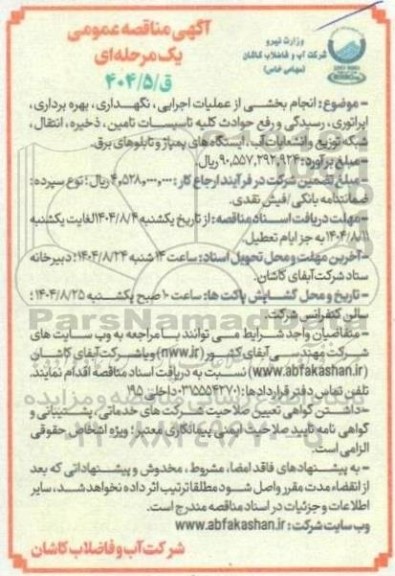 آگهی مناقصه عمومی
یک مرحله‌ای
ق/۴۰۴/۵
وزارت نیرو
شرکت آب و فاضلاب کاشان
(سهامی خاص)
- موضوع: انجام بخشی از عملیات اجرایی، نگهداری، بهره برداری،
اپراتوری، رسیدگی و رفع حوادث کلیه تاسیسات تامین، ذخیره، انتقال،
شبکه توزیع و انشعابات آب، ایستگاه های پمپاژ و تابلوهای برق.
- مبلغ برآورد: ۹۰,۵۵۷,۲۹۲,۹۲۴ ریال.
- مبلغ تضمین شرکت در فرآیند ارجاع کار: ۴,۵۲۸,۰۰۰,۰۰۰ ریال؛ نوع سپرده:
ضمانتنامه بانکی / فیش نقدی.
- مهلت دریافت اسناد مناقصه: از تاریخ یکشنبه ۱۴۰۴/۸/۴ لغایت یکشنبه
۱۴۰۴/۸/۱۱ به جز ایام تعطیل.
- آخرین مهلت و محل تحویل اسناد: ساعت ۱۴ شنبه ۱۴۰۴/۸/۲۴؛ دبیرخانه
ستاد شرکت آبفای کاشان.
- تاریخ و محل گشایش پاکت ها: ساعت ۱۰ صبح یکشنبه ۱۴۰۴/۸/۲۵؛
سالن کنفرانس شرکت.
- متقاضیان واجد شرایط می توانند با مراجعه به وب سایت های
شرکت مهندسی آبفای کشور (nww.ir) و یا شرکت آبفای کاشان
(www.abfakashan.ir) نسبت به دریافت اسناد مناقصه اقدام نمایند.
تلفن تماس دفتر قراردادها: ۰۳۱۵۵۵۴۲۷۰۱ داخلی ۱۹۵
- داشتن گواهی تعیین صلاحیت شرکت های خدماتی، پشتیبانی و
گواهی نامه تایید صلاحیت ایمنی پیمانکاری معتبر؛ ویژه اشخاص حقوقی
الزامی است.
- به پیشنهادهای فاقد امضا، مشروط، مخدوش و پیشنهاداتی که بعد
از انقضاء مدت مقرر واصل شود مطلقا ترتیب اثر داده نخواهد شد، سایر
اطلاعات و جزئیات در اسناد مناقصه مندرج است.
وب سایت شرکت: www.abfakashan.ir
شرکت آب و فاضلاب کاشان
ParsNamadData